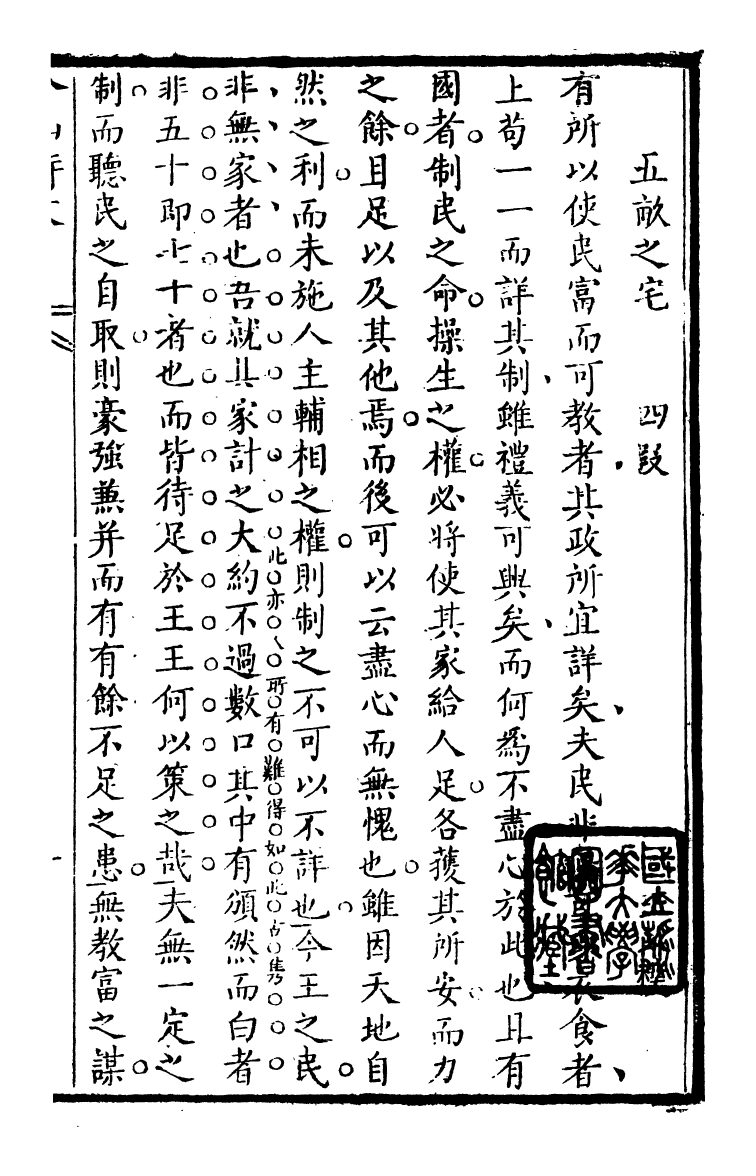 五畝之宅 四段
有所以使民富而可教者其政所宜詳矣夫民非衣食者
上苟一一而詳其制雖禮義可興矣而何為不盡心於此也且有
國者制民之命操生之權必將使其家給人足各獲其所安而力
之餘且足以及其他焉而後可以云盡心而無愧也雖因天地自
然之利而未施人主輔相之權則制之不可以不詳也今王之民
此亦人所有難得如此古雋
非無家者也吾就其家計之大約不過數口其中有頒然而白者
非五十即七十者也而皆待足於王王何以策之哉夫無一定之
制而聽民之自取則豪強兼并而有有餘不足之患無教富之謀
國立清華大學圖書館藏